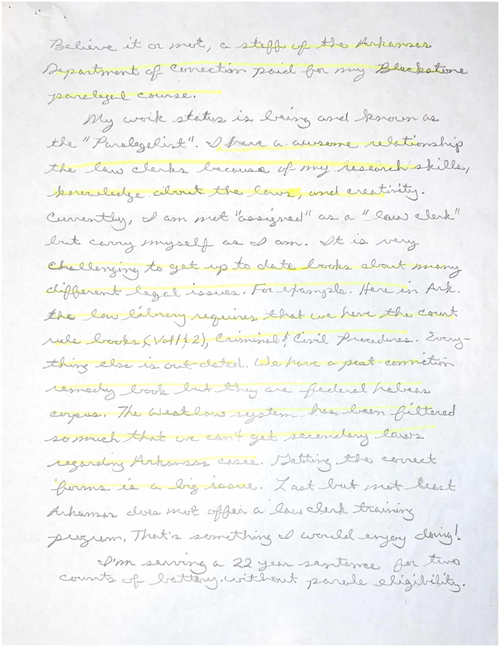 Believe it or not, a staff of the Arkansas
Department of Correction paid for my Blackstone
paralegal course.
My work status is being and known as
the "Paralegalist". I have a awsome relationship
the law clerks because of my research skills,
knowledge about the laws, and creativity.
Currently, I am not "assigned" as a "law clerk"
but carry myself as I am. It is very
challenging to get up to date books about many
different legal issues. For example. Here in Ark.
the law library requires that we have the court
rule books (Vol 1 & 2), Criminal & Civil Procedures. Every-
thing else is out-dated. We have a post-conviction
remedy book but they are federal habeas
corpus. The Westlaw system has been filtered
so much that we can't get secondary laws
regarding Arkansas cases. Getting the correct
forms is a big issue. Last but not least
Arkansas does not offer a law clerk training
program. That's something I would enjoy doing!
I'm serving a 22 year sentence for two
counts of battery. without parole eligibility.